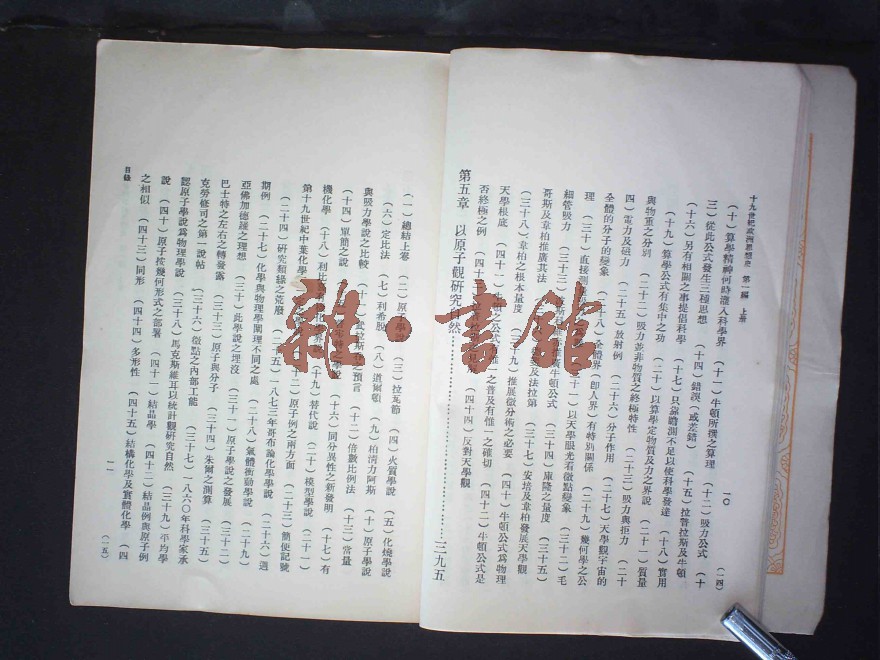 十九世紀歐洲思想史 第一編 上册
一〇
(一四)
(十)算學精神何時灌入科學界 (十一)牛頓所撰之算理 (十二)吸力公式 (十
三)從此公式發生三種思想 (十四)錯誤(或差錯) (十五)拉普拉斯及牛頓
(十六)另有相關之事提倡科學 (十七)只靠瞻測不足以使科學發達 (十八)實用
(十九)算學公式有集中之功 (二十)以算學定物質及力之界說 (二十一)質量
與物重之分別 (二十二)吸力並非物質之終極特性 (二十三)吸力與拒力 (二十
四)電力及磁力 (二十五)放射例 (二十六)分子作用 (二十七)天學觀宇宙的
全體的分子的變象 (二十八)全體界(即人界)有特別關係 (二十九)幾何學之公
理 (三十)直接 (三十一)以天學眼光看微點變象 (三十二)毛
細管吸力 (三十三) 牛頓公式 (三十四)庫隆之量度 (三十五)
哥斯及韋柏推廣其法 及法拉第 (三十七)安培及韋柏發展天學觀
(三十八)韋柏之根本量度 (三十九)推展微分術之必要 (四十)牛頓公式爲物理
天學根底 (四十一) 之公式爲惟一之普及有惟一之確切 (四十二)牛頓公式是
否終極之例 (四十三) (四十四)反對天學觀
第五章 以原子觀研究自然…………三九五
(一)總結上卷 (二)原子學說 (三)拉瓦節 (四)火質學說 (五)化燒學說
(六)定比法 (七)利希脫 (八)道爾頓 (九)柏清力阿斯 (十)原子學說
與吸力學說之比較 (十一) 拉斯 之預言 (十二)倍數比例法 (十三)當量
(十四)單簡之說 之學說 (十六)同分異性之新發明 (十七)有
機化學 (十八)利比 (十九)替代說 (二十)模型學說 (二十一)
第十九世紀中葉化學 (二十二)原子例之兩方面 (二十三)簡便記號
(二十四)研究類緣之荒廢 (二十五)一八七三年哥布論化學學說 (二十六)週
期例 (二十七)化學與物理學闡理不同之處 (二十八)氣體衝動學說 (二十九)
亞佛加德羅之理想 (三十)此學說之埋沒 (三十一)原子學說之發展 (三十二)
巴士特之左右之轉發露 (三十三)原子與分子 (三十四)朱爾之測算 (三十五)
克勞修司之第一說帖 (三十六)微點之內部工能 (三十七)一八六〇年科學家承
認原子學說爲物理學說 (三十八)馬克斯維耳以統計觀研究自然 (三十九)平均學
說 (四十)原子按幾何形式之部署 (四十一)結晶學 (四十二)結晶例與原子例
之相似 (四十三)同形 (四十四)多形性 (四十五)結構化學及實體化學 (四
目錄
一一
(一五)
雜·書館